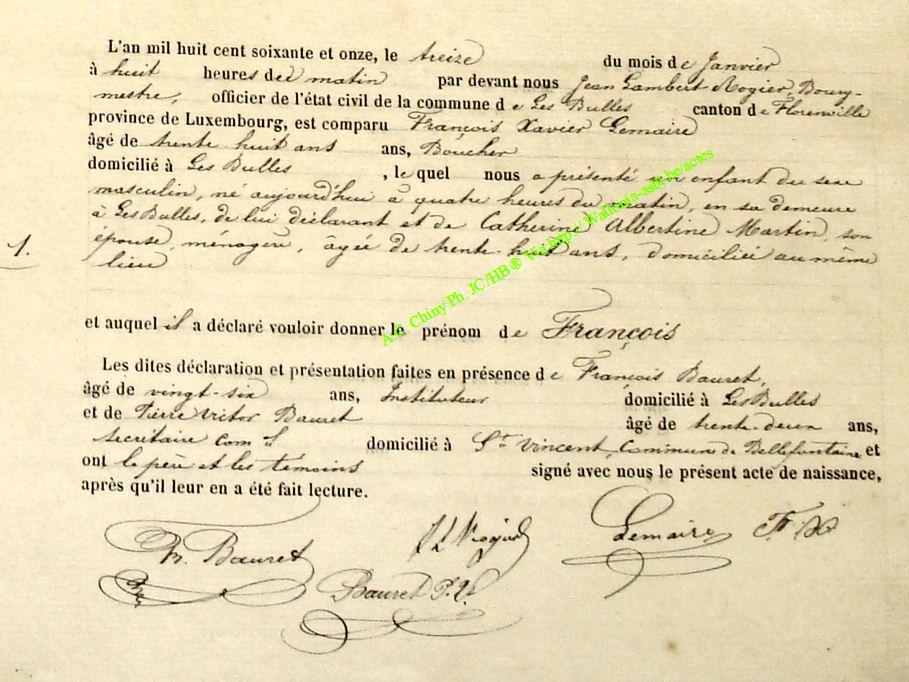 L'an mil huit cent soixante et onze, le treize du mois de Janvier
à huit heures del matin par devant nous Jean Lambert Rogier, Bourg-
mestre, officier de l'état civil de la commune de Les Bulles canton de Florenville
province de Luxembourg, est comparu François Xavier Lemaire
âgé de trente huit ans ans, Boucher
domicilié à Les Bulles , le quel nous a présenté un enfant du sexe
masculin, né aujourd'hui à quatre heures du matin, en sa demeure
à Les Bulles, de lui déclarant et de Catherine Albertine Martin, son
1. épouse, ménagère agée de trente-huit ans, domiciliée au même
lieu
et auquel il a déclaré vouloir donner le prénom de François
Les dites déclaration et présentation faites en présence de François Bauret,
âgé de vingt-six ans, Instituteur domicilié à Les Bulles
et de Pierre Victor Bauret âgé de trente-deux ans,
Secrétaire com.l domicilié à St Vincent, Commune de Bellefontaine et
ont le père et les témoins signé avec nous le présent acte de naissance,
après qu'il leur en a été fait lecture.
Fr. Bauret J L Rogier Lemaire F. X
Bauret P. V.
A.C. Chiny Ph. JC/HB ® Visit http://Wallonia-asbl.be/actes